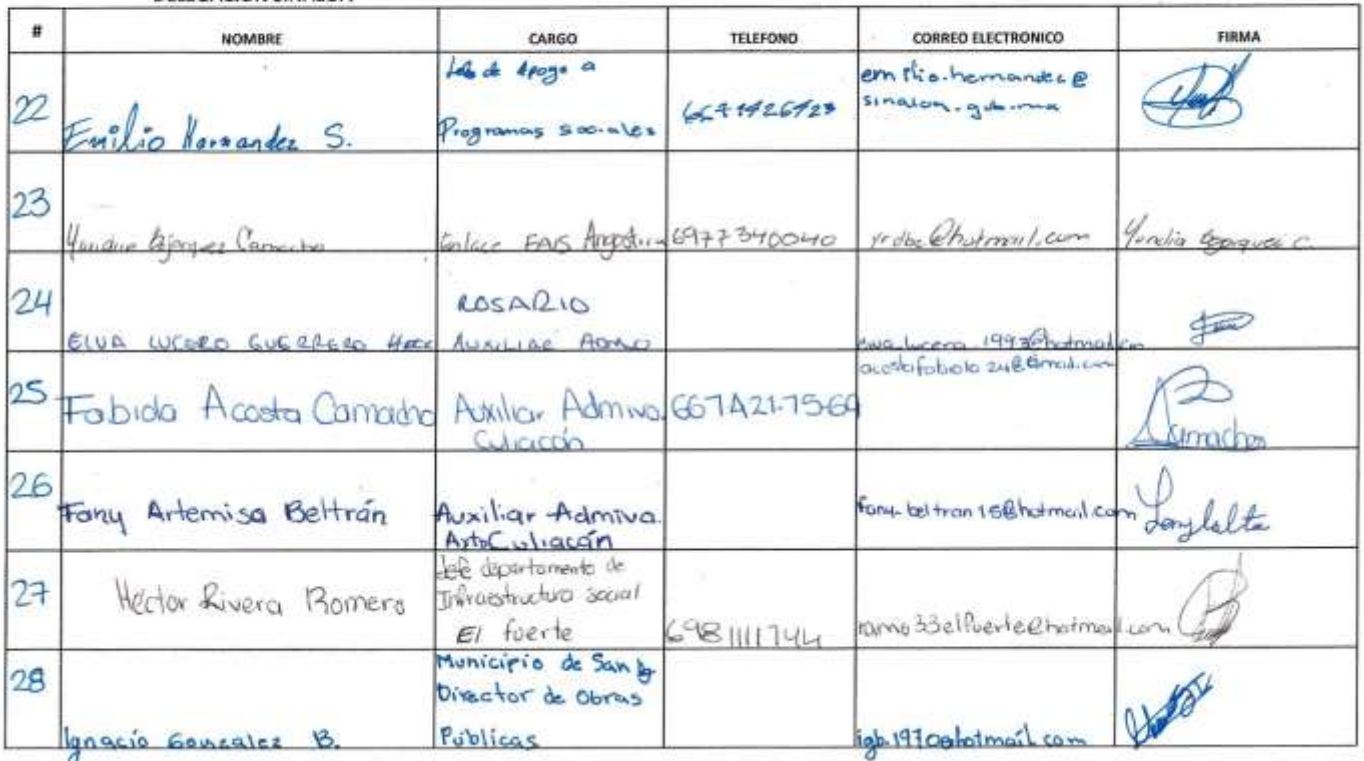 # NOMBRE CARGO TELEFONO CORREO ELECTRONICO FIRMA
22 Emilio Hernandez S. Jefe de Apoyo a
Programas sociales
emilio.hernandez@
sinaloa.gob.mx
23 Camacho Enlace FAIS Angostura 6977340040 yrdbc@hotmail.com
24 ELVA LUCERO GUERRERO ROSARIO
AUXILIAR ADMVO
25 Fabiola Acosta Camacho Auxiliar Admiva
Culiacán
667421-75-69
acostafabiola24@Gmail.com
Camacho
26 Fany Artemisa Beltrán Auxiliar Admiva.
Culiacán
fany-beltran15@hotmail.com
27 Héctor Rivera Romero Jefe departamento de
Infraestructura social
El fuerte
6981111744 ramo33elfuerte@hotmail.com
28 Ignacio Gonzalez B. Municipio de San
Director de Obras
Públicas
igb.1970@hotmail.com